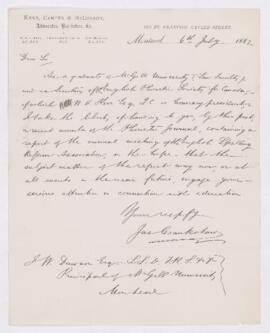 Kerr, Carter & McGibbon,
Advocates, Barristers, &c.
Montreal 6th July 1882
Dear Sir
As a graduate of McGill University (Law Faculty) &
of the English Phonetic Society for Canada,
of which W H Kerr Esq Q.C. is honorary president,
I take the liberty of sending to you, by this post,
a recent number of the Phonetic Journal, containing a
report of the annual meeting of the English Spelling
Reform Association, in the hope, that the
subject matter of the report may now or at
all events in the near future, engage your
serious attention in connection with education
Yours respfy
Jas Crankshaw
J. W. Dawson Esq. LL.D. F.R.S. &c
Principal of McGill University
Montreal